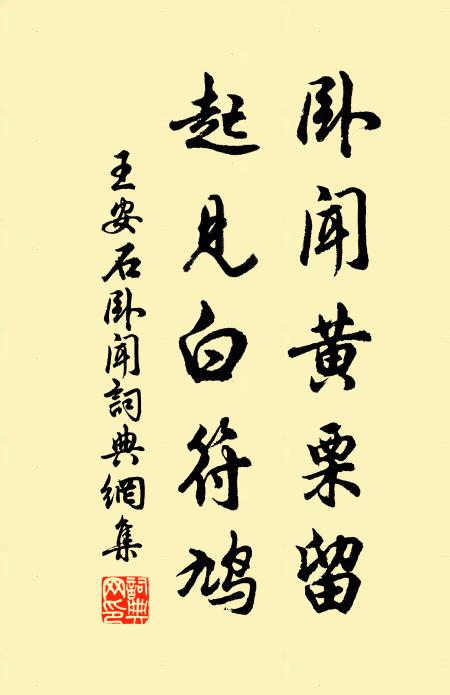 卧闻黄栗留
起见白符鸠
王安石卧闻詞典網集
詞典网印